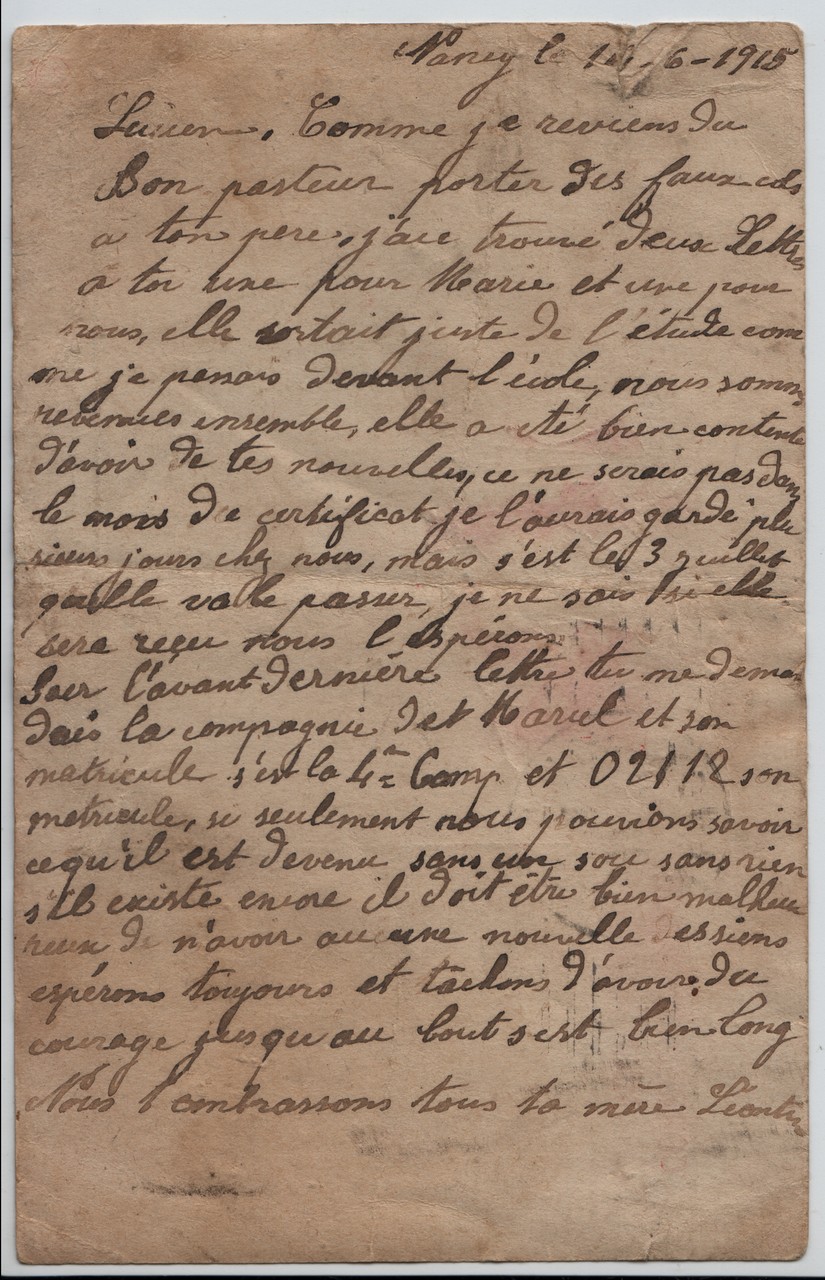 Nancy le 14-6-1915
Lucien. Comme je reviens du
Bon pasteur porter des faux cols
a ton pere, j'aie trouvé deux Lettres
a toi une pour Marie et une pour
nous, elle sortait juste de l'étude com
me je pensais devant l'école, nous somm
revenues ensemble, elle a été bien contente
d'avoir de tes nouvelles, ce ne serais pas dans
le mois du certificat je l'aurais gardé plu
sieurs jours chez nous, mais s'est le 3 juillet
quelle va le passer, je ne sais si elle
sera reçu nous l'espérons
Sur l'avant dernière lettre tu me deman
dais la compagnie det Marcel et son
matricule s'est la 4e Comp et 02112 son
matricule, si seulement nous pourions savoir
ce qu'il est devenu sans un sou sans rien
s'il existe encore il doit être bien malheu
reux de n'avoir aucune nouvelle des siens
espérons toujours et tachons d'avoir du
courage jusqu au bout s est bien long
Nous t'embrassons tous ta mère Léontin